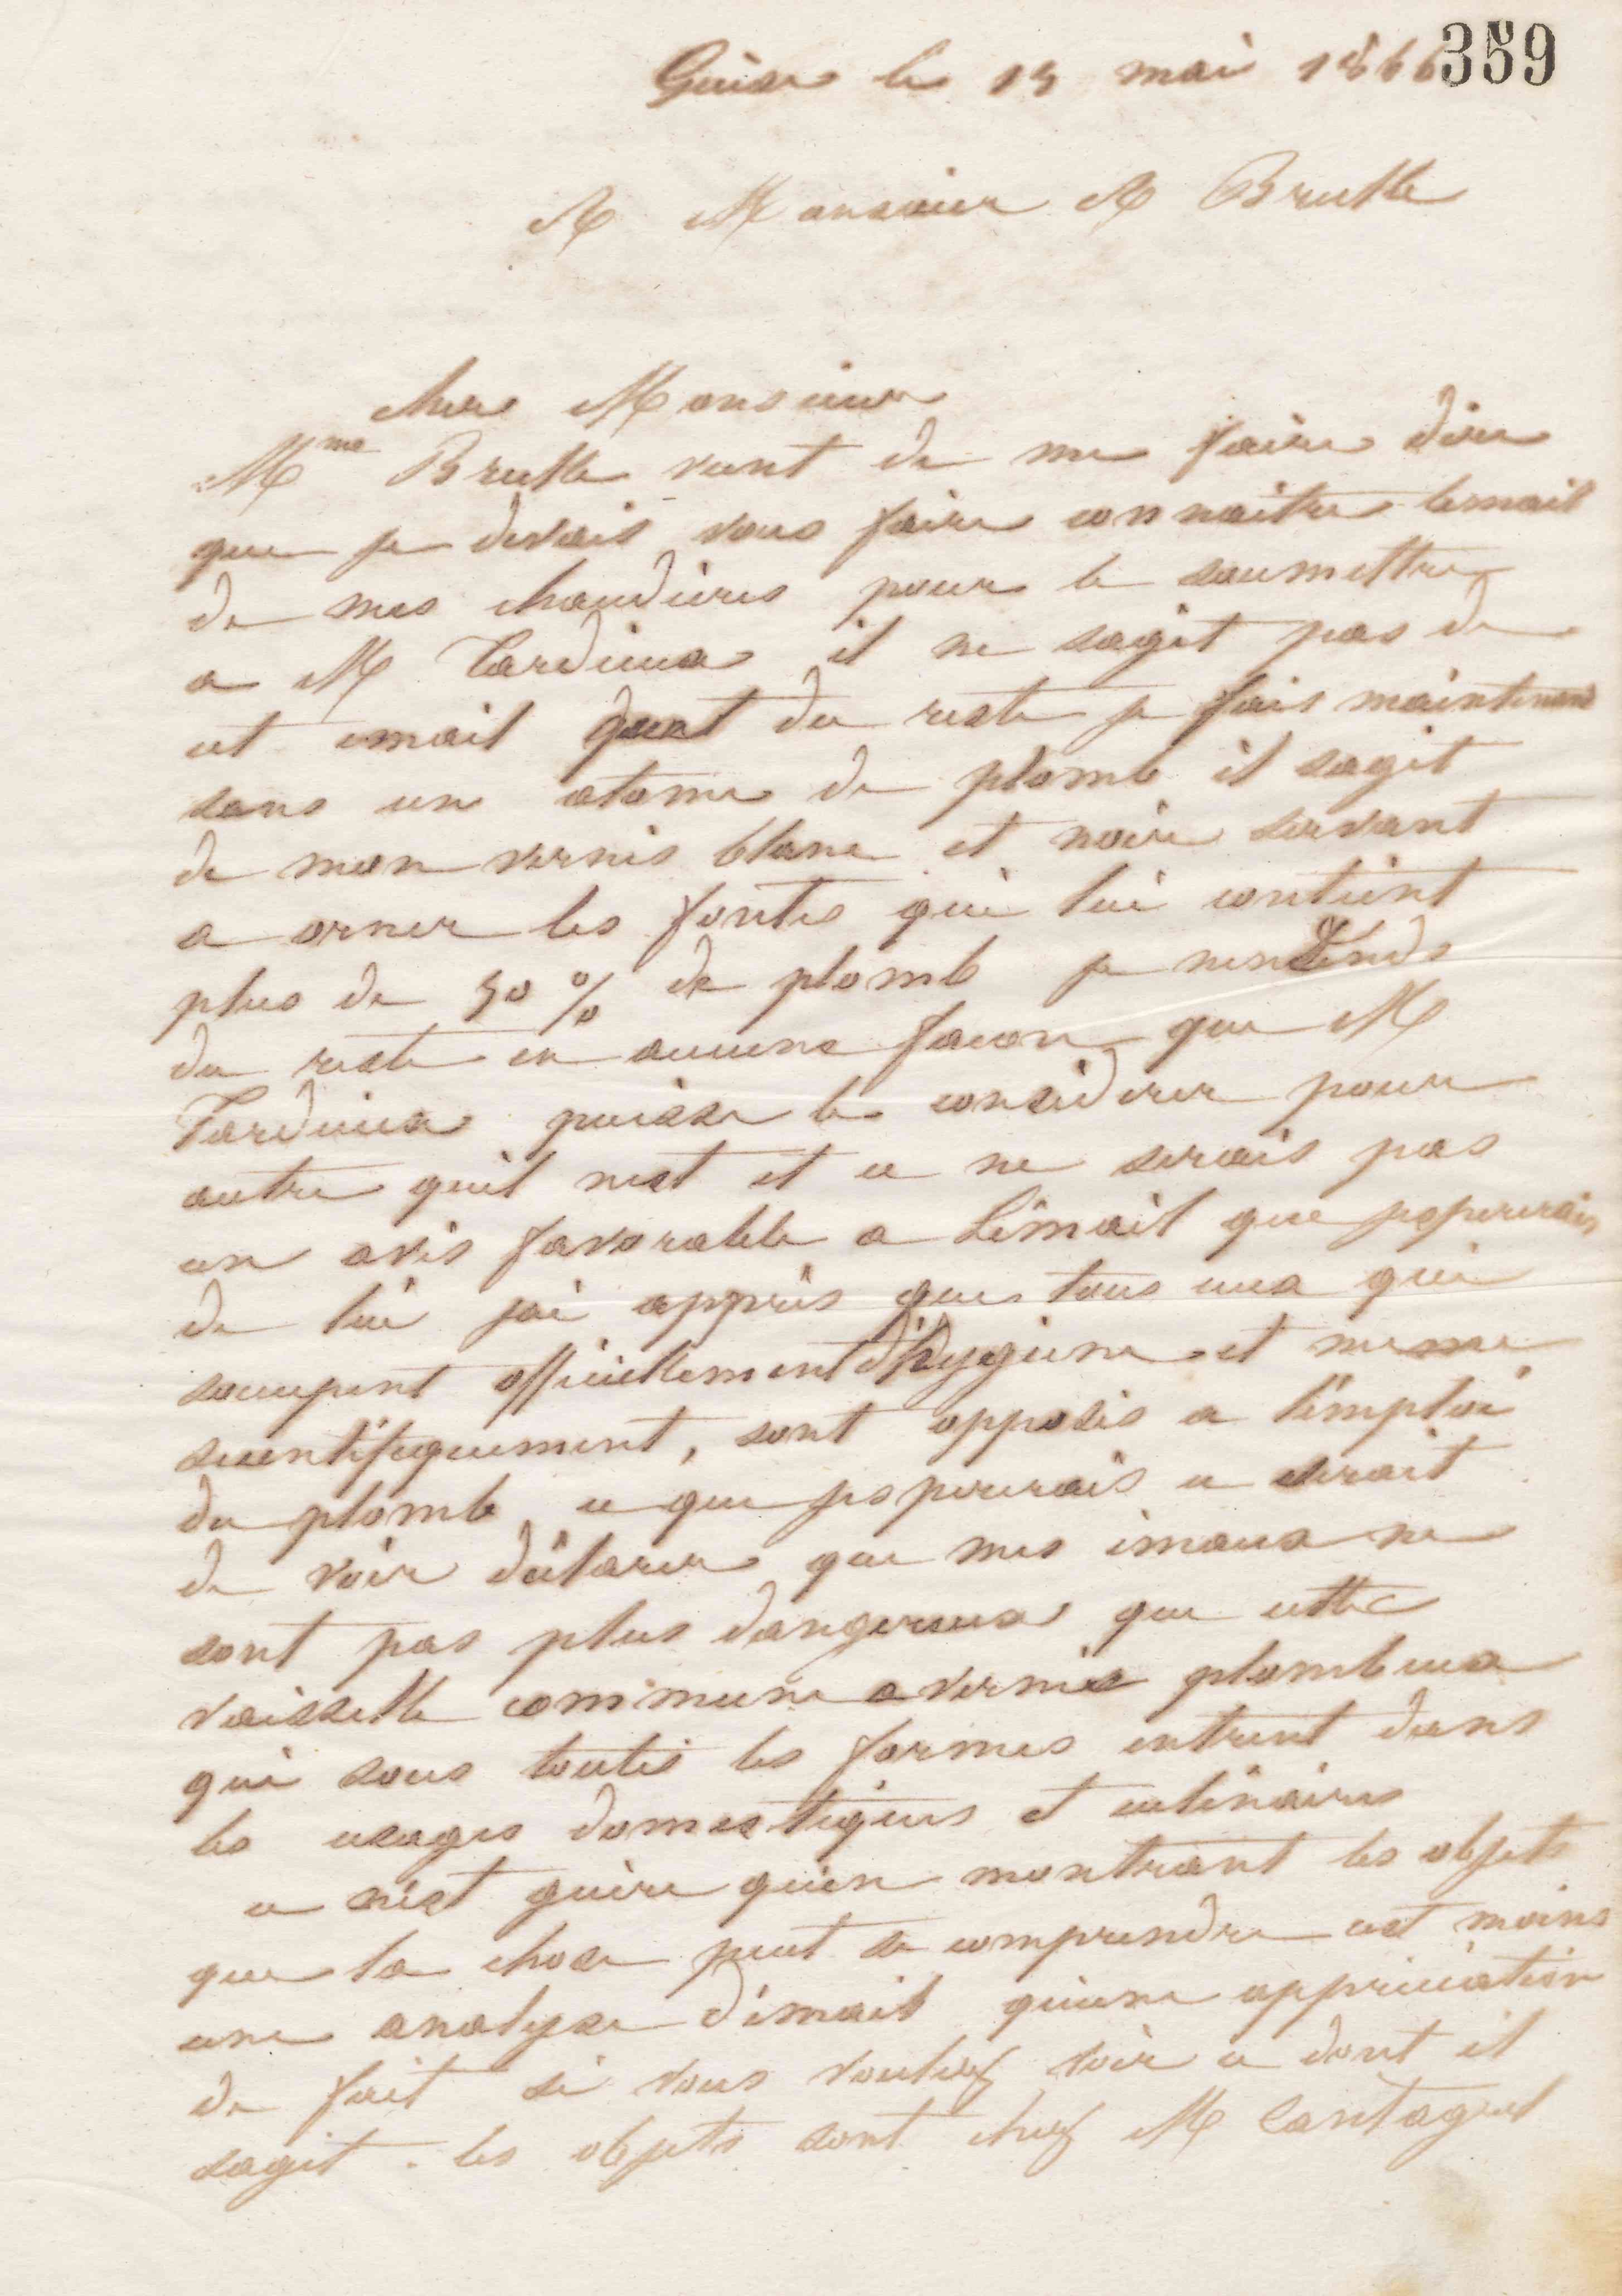 359
Guise le 15 mai 1866
A Monsieur A Brulle
cher Monsieur
Mme Brulle vient de me faire dire
que je devais vous faire connaitre lemail
de mes chaudières pour le soumettre
a M Tardieux il ne sagit pas de
cet email quent du reste je fais maintenant
sans un atome de plomb il sagit
de mon vernis blanc et noir servant
a orner les fontes qui lui contient
plus de 50 % de plomb je nentends
du reste en aucune facon que M
Tardieux puisse le considerer pour
autre quil nest et ce ne serais pas
un avis favorable a L'émail que jespererais
de lui jai appris que tous ceux qui
soccupent officiellement d'hygiene et meme
scientifiquement, sont opposés a l'emploi
du plomb ce que jespererais ce serait
de voir déclarer que mes émaux ne
sont pas plus dangereux que cette
vaisselle commune a vernis plombeux
qui sous toutes les formes entrent dans
les usages domestiques et culinaires
ce nest guère qu'en montrant les objets
que la chose peut se comprendre cest moins
une analyse d'émail qu'une appréciation
de fait si vous voulez voir ce dont il
sagit . les objets sont chez M Cantagrel